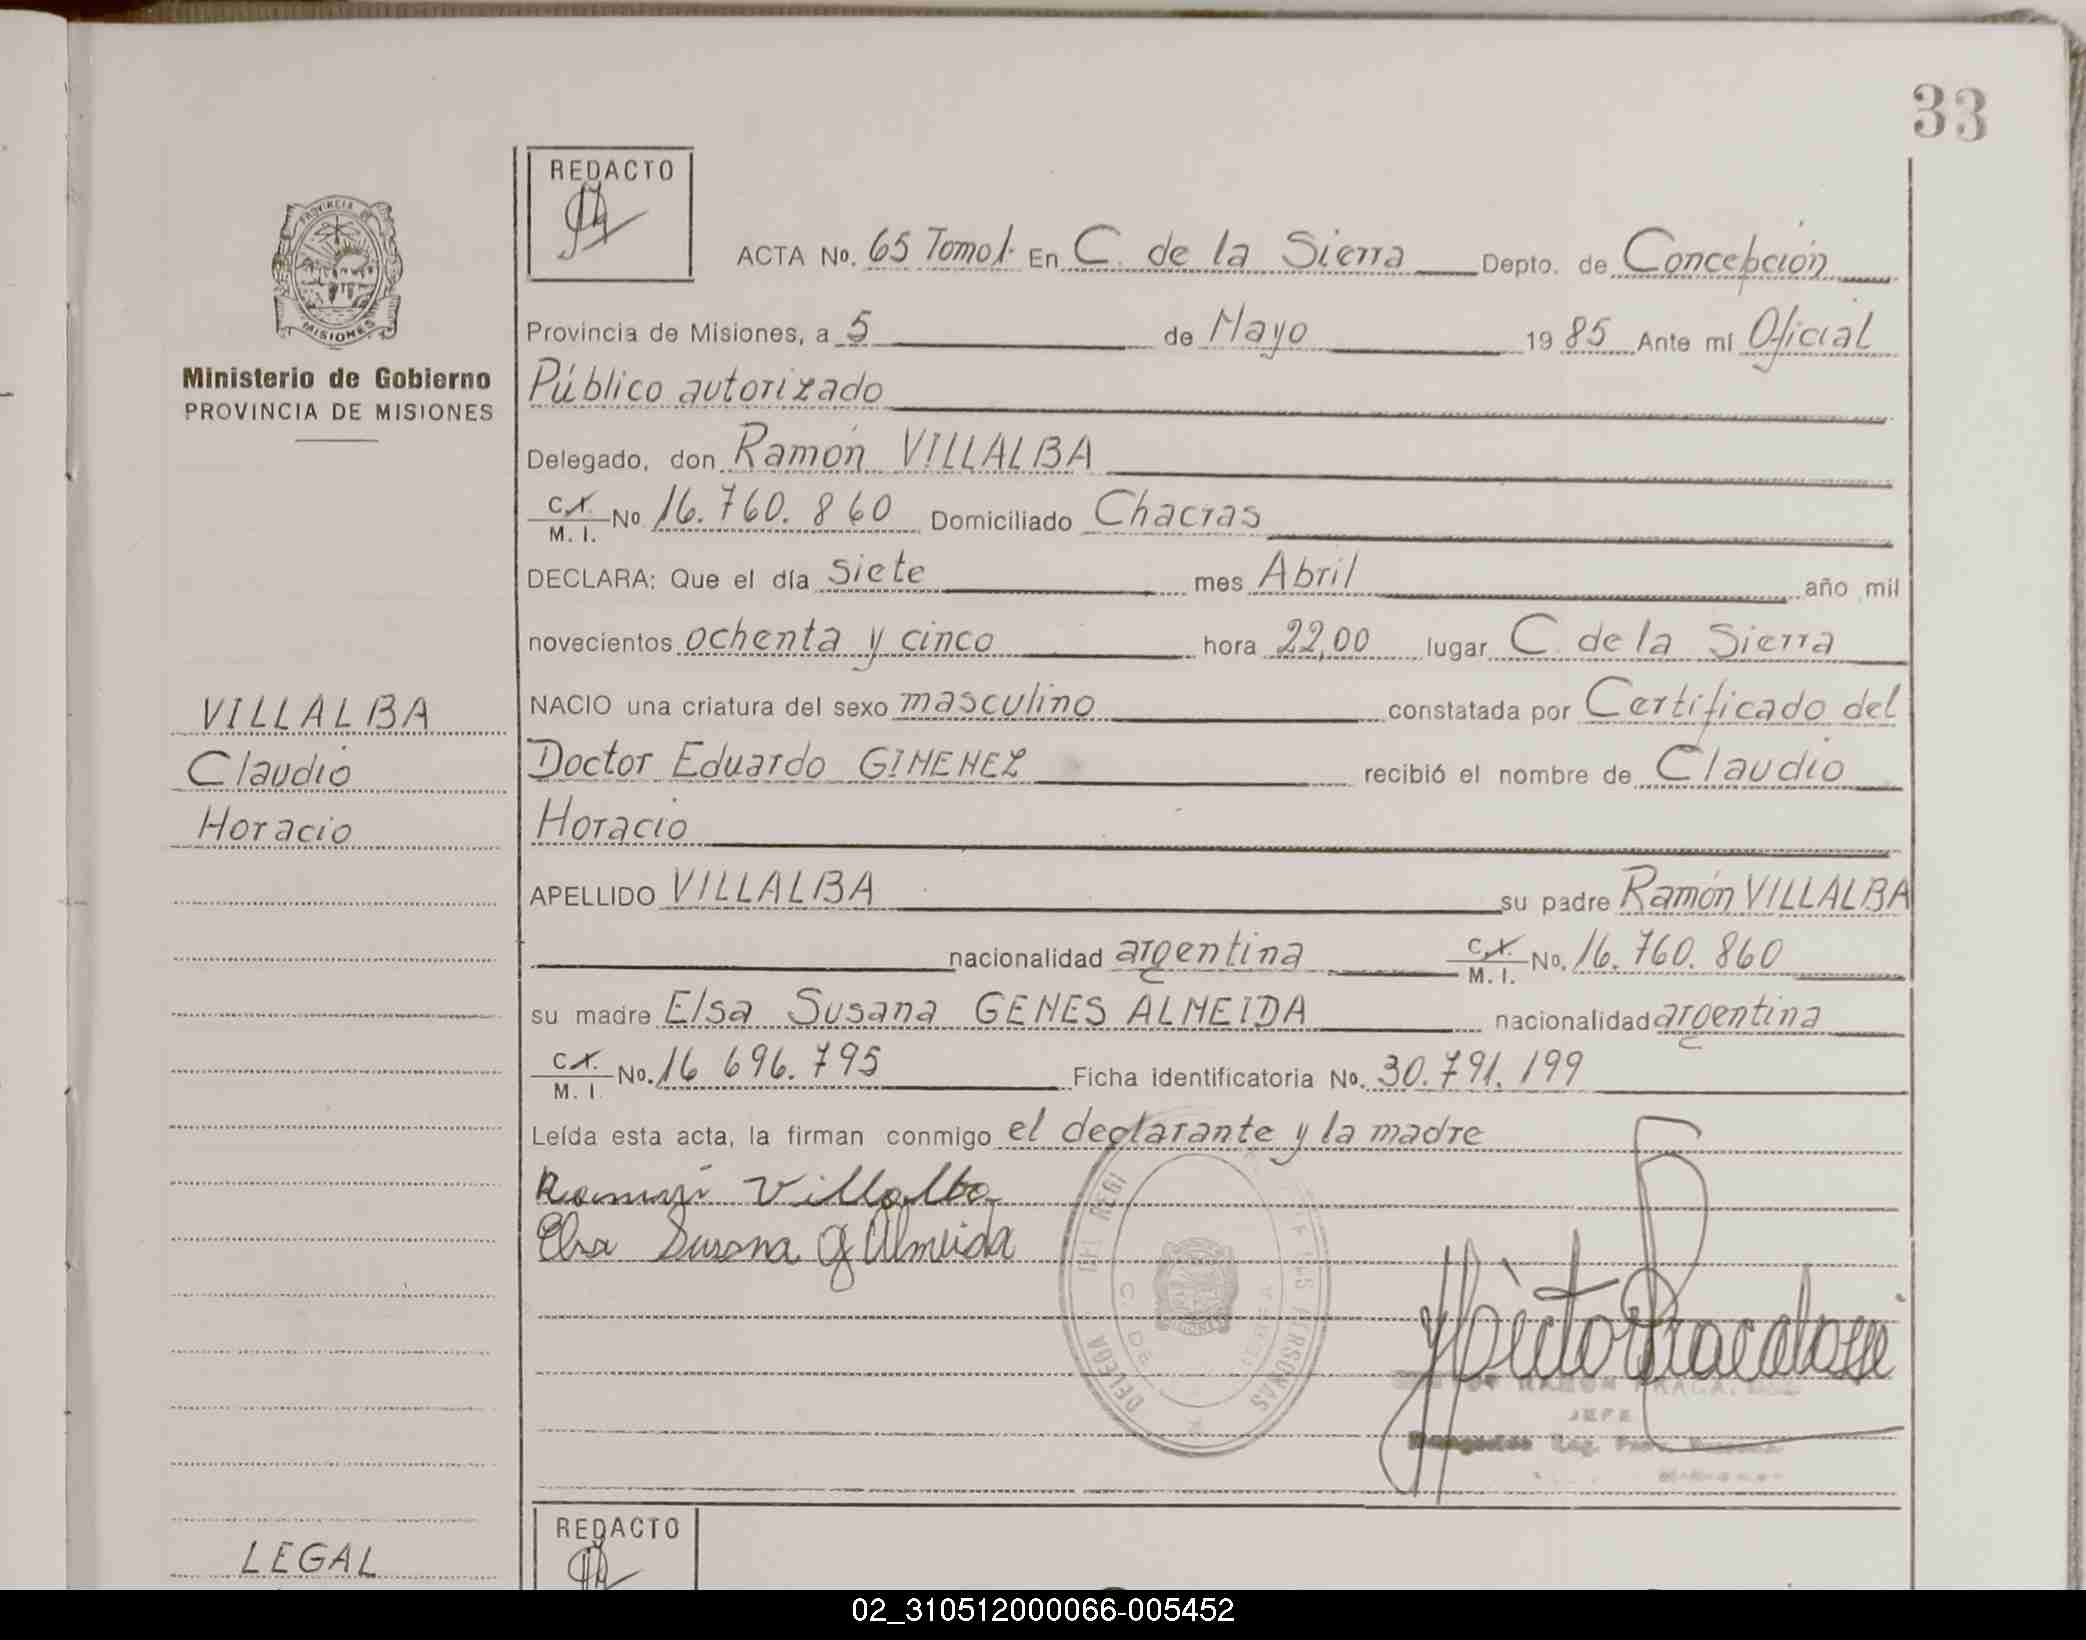 33
REDACTO
ACTA No. 65 Tomo I. En C. de la Sierra Depto. de Concepción
Provincia de Misiones, a 5 de Mayo 1985 Ante mí Oficial
Ministerio de Gobierno
PROVINCIA DE MISIONES
Público autorizado
Delegado, don Ramón VILLALBA
C.I. M. I. No. 16.760.860 Domiciliado Chacras
DECLARA: Que el día siete mes Abril año mil
novecientos ochenta y cinco hora 22,00 lugar C. de la Sierra
VILLALBA
NACIO una criatura del sexo masculino constatada por Certificado del
Claudio
Doctor Eduardo GIMENEZ recibió el nombre de Claudio
Horacio
Horacio
APELLIDO VILLALBA su padre Ramón VILLALBA
nacionalidad argentina C.I. M. I. No. 16.760.860
su madre Elsa Susana GENES ALMEIDA nacionalidad argentina
C.I. M. I. No. 16 696.795 Ficha identificatoria No. 30.791.199
Leída esta acta, la firman conmigo el declarante y la madre
Ramón Villalba
Elsa Susana G Almeida
JEFE
REDACTO
LEGAL
02_310512000066-005452